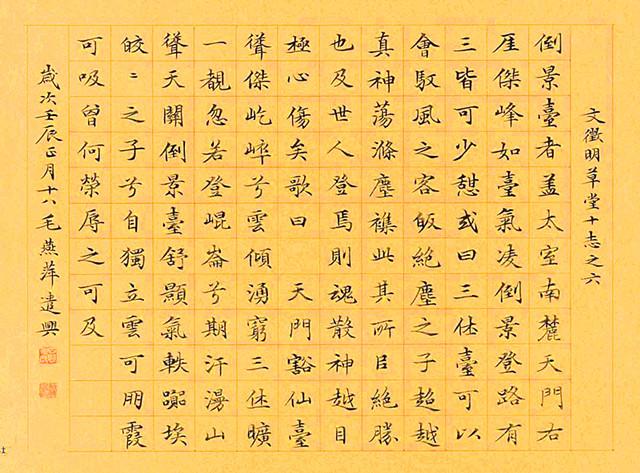 文徵明草堂十志之六
倒景臺者盖太室南麓天門右
厓傑峰如臺氣凌倒景登路有
三皆可少憩或曰三休臺可以
會馭風之客皈絕塵之子超越
真神蕩滌塵襟此其所㠯絕勝
也及世人登焉則魂散神越目
極心傷矣歌曰 天門豁仙臺
聳傑屹崒兮雲傾湧窮三休曠
一覩忽若登崐崙兮期汗漫山
聳天關倒景臺舒顥氣軼埃
皎〻之子兮自獨立雲可朋霞
可吸曾何榮辱之可及
歲次壬辰正月十八毛燕萍遣興